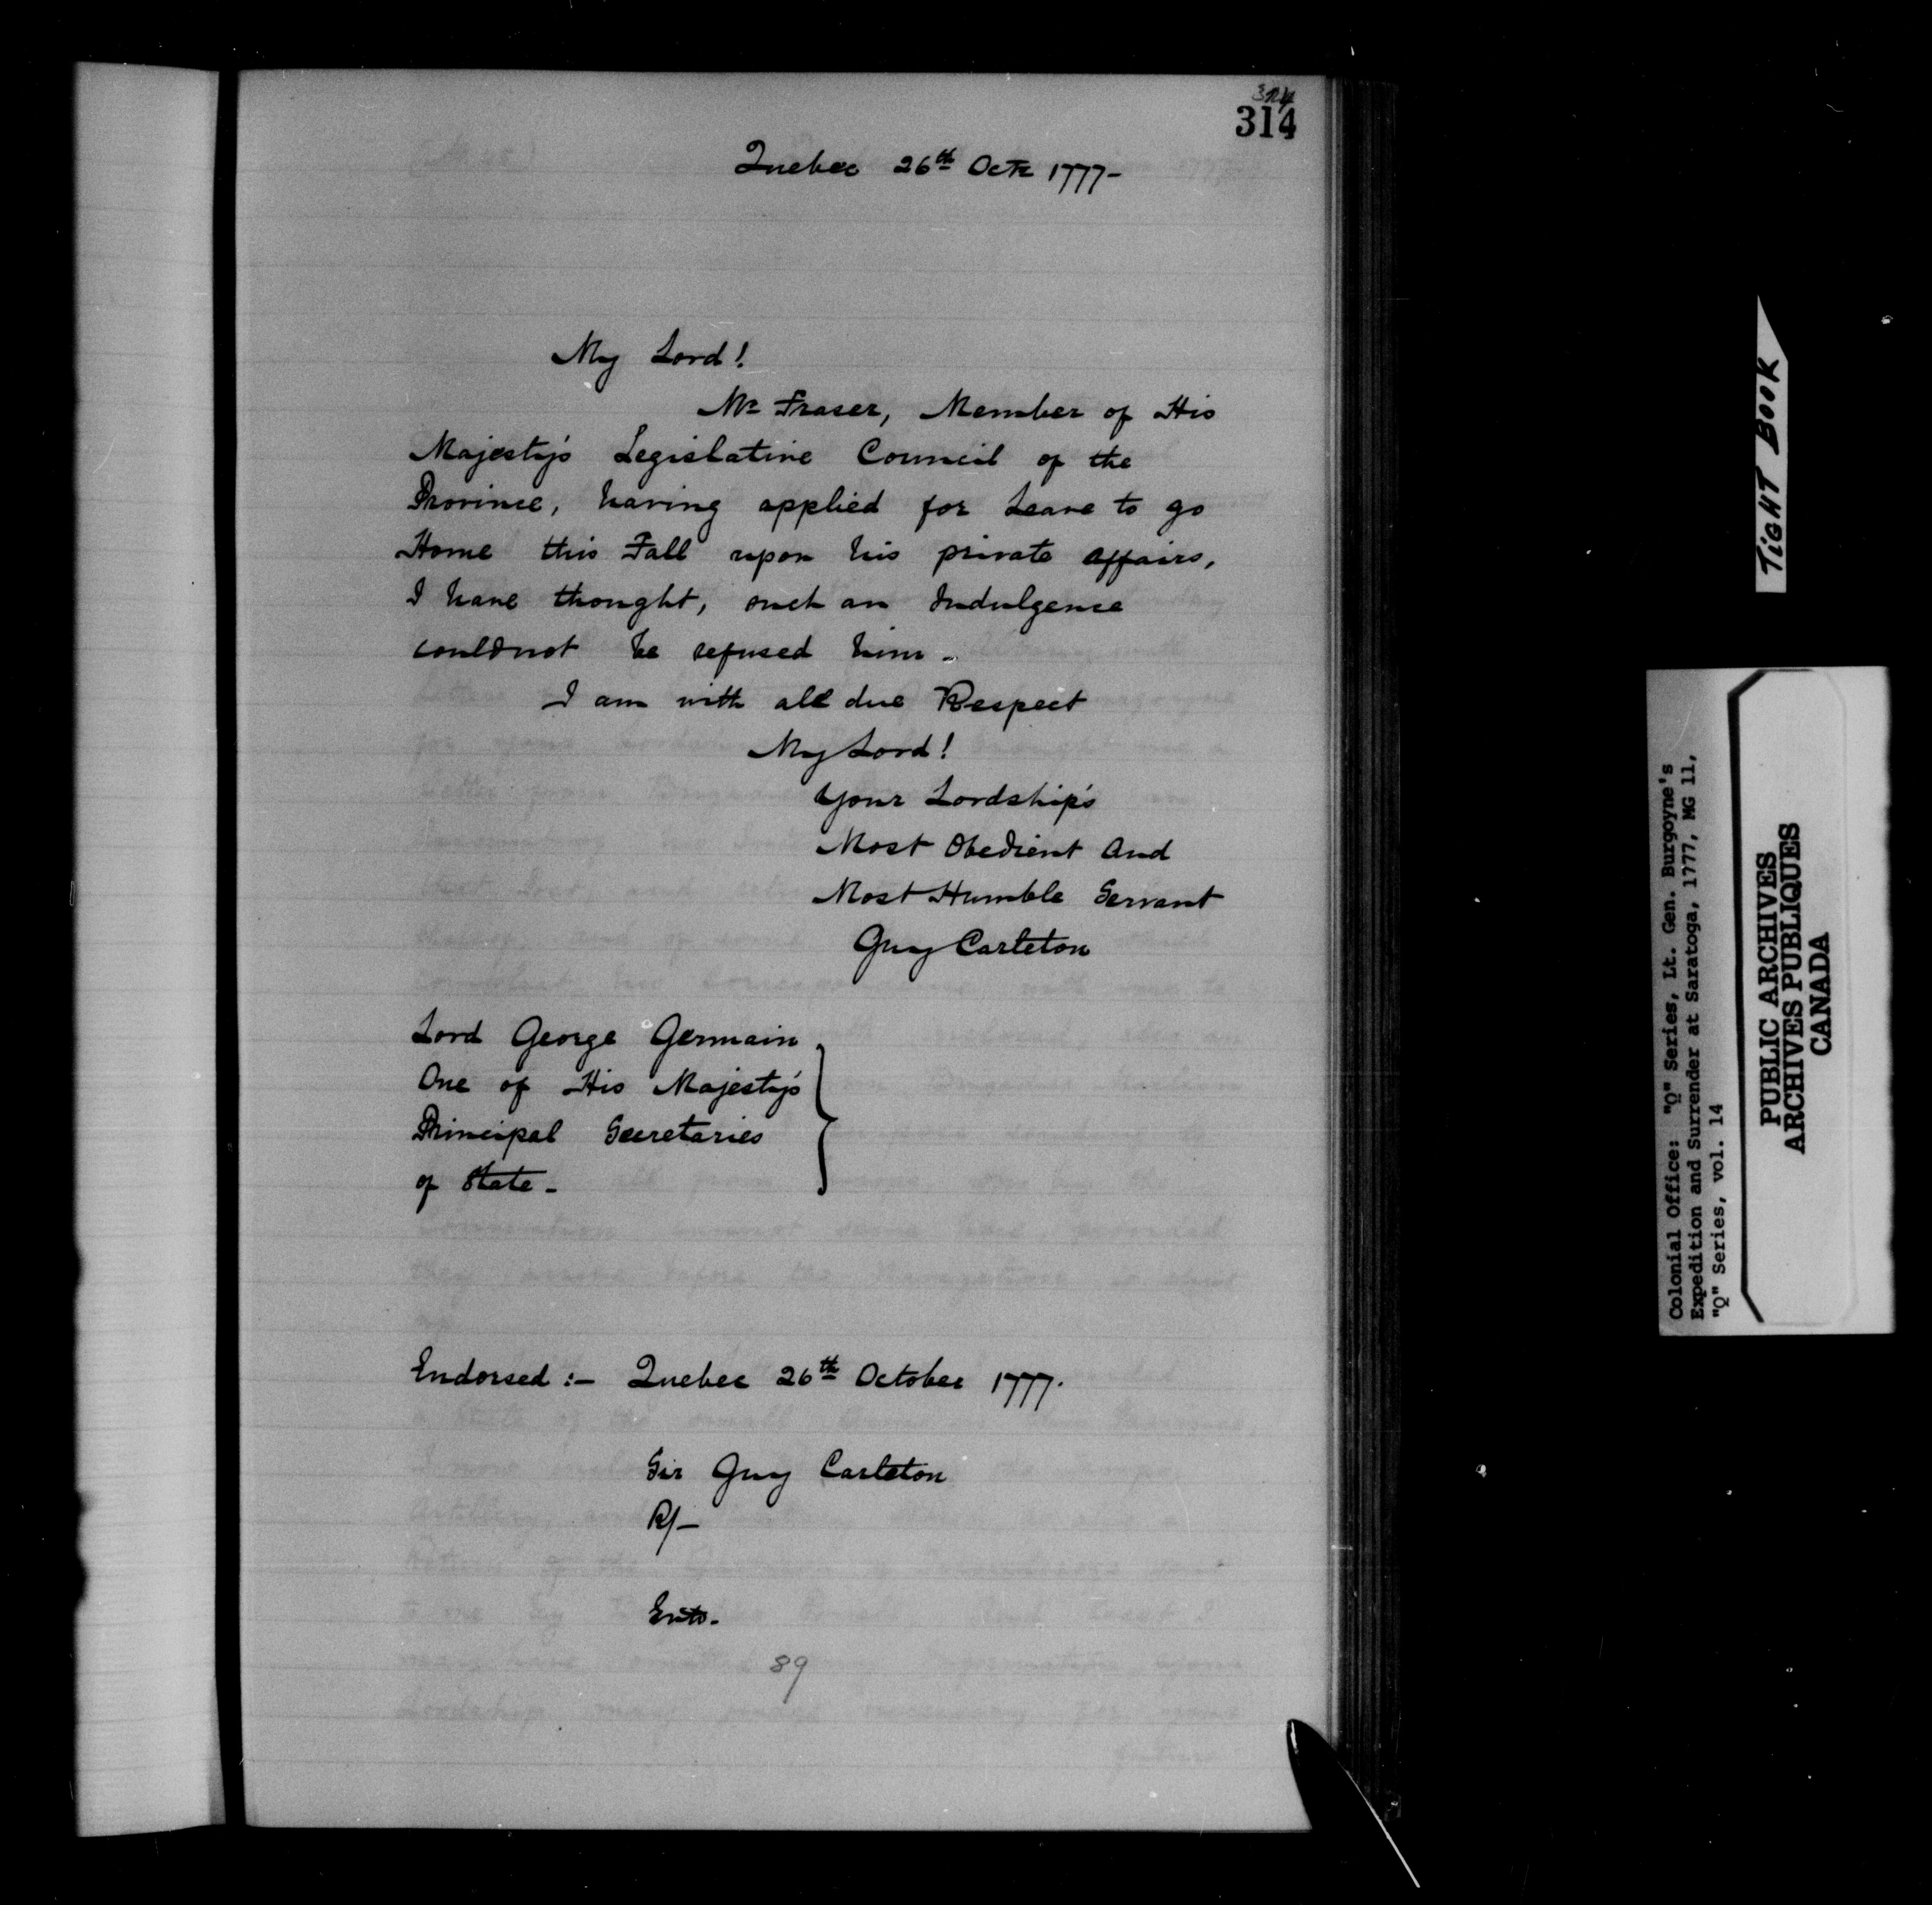 324
314
Quebec 26th Octr 1777-
My Lord!
Mr Fraser, Member of His
Majesty's Legislative Council of the
Province, having applied for Leave to go
Home this Fall upon his private affairs,
I have thought, such an Indulgence
could not be refused him -
I am with all due Respect
My Lord!
Your Lordship's
Most Obedient And
Most Humble Servant
Guy Carleton
Lord George Germain
One of His Majesty's
Principal Secretaries
of State -
Endorsed :- Quebec 26th October 1777.
Sir Guy Carleton
R/-
89
TIGHT BOOK
Colonial Office: "Q" Series, Lt. Gen. Burgoyne's
Expedition and Surrender at Saratoga, 1777, MG 11,
"Q" Series, vol. 14
PUBLIC ARCHIVES
ARCHIVES PUBLIQUES
CANADA